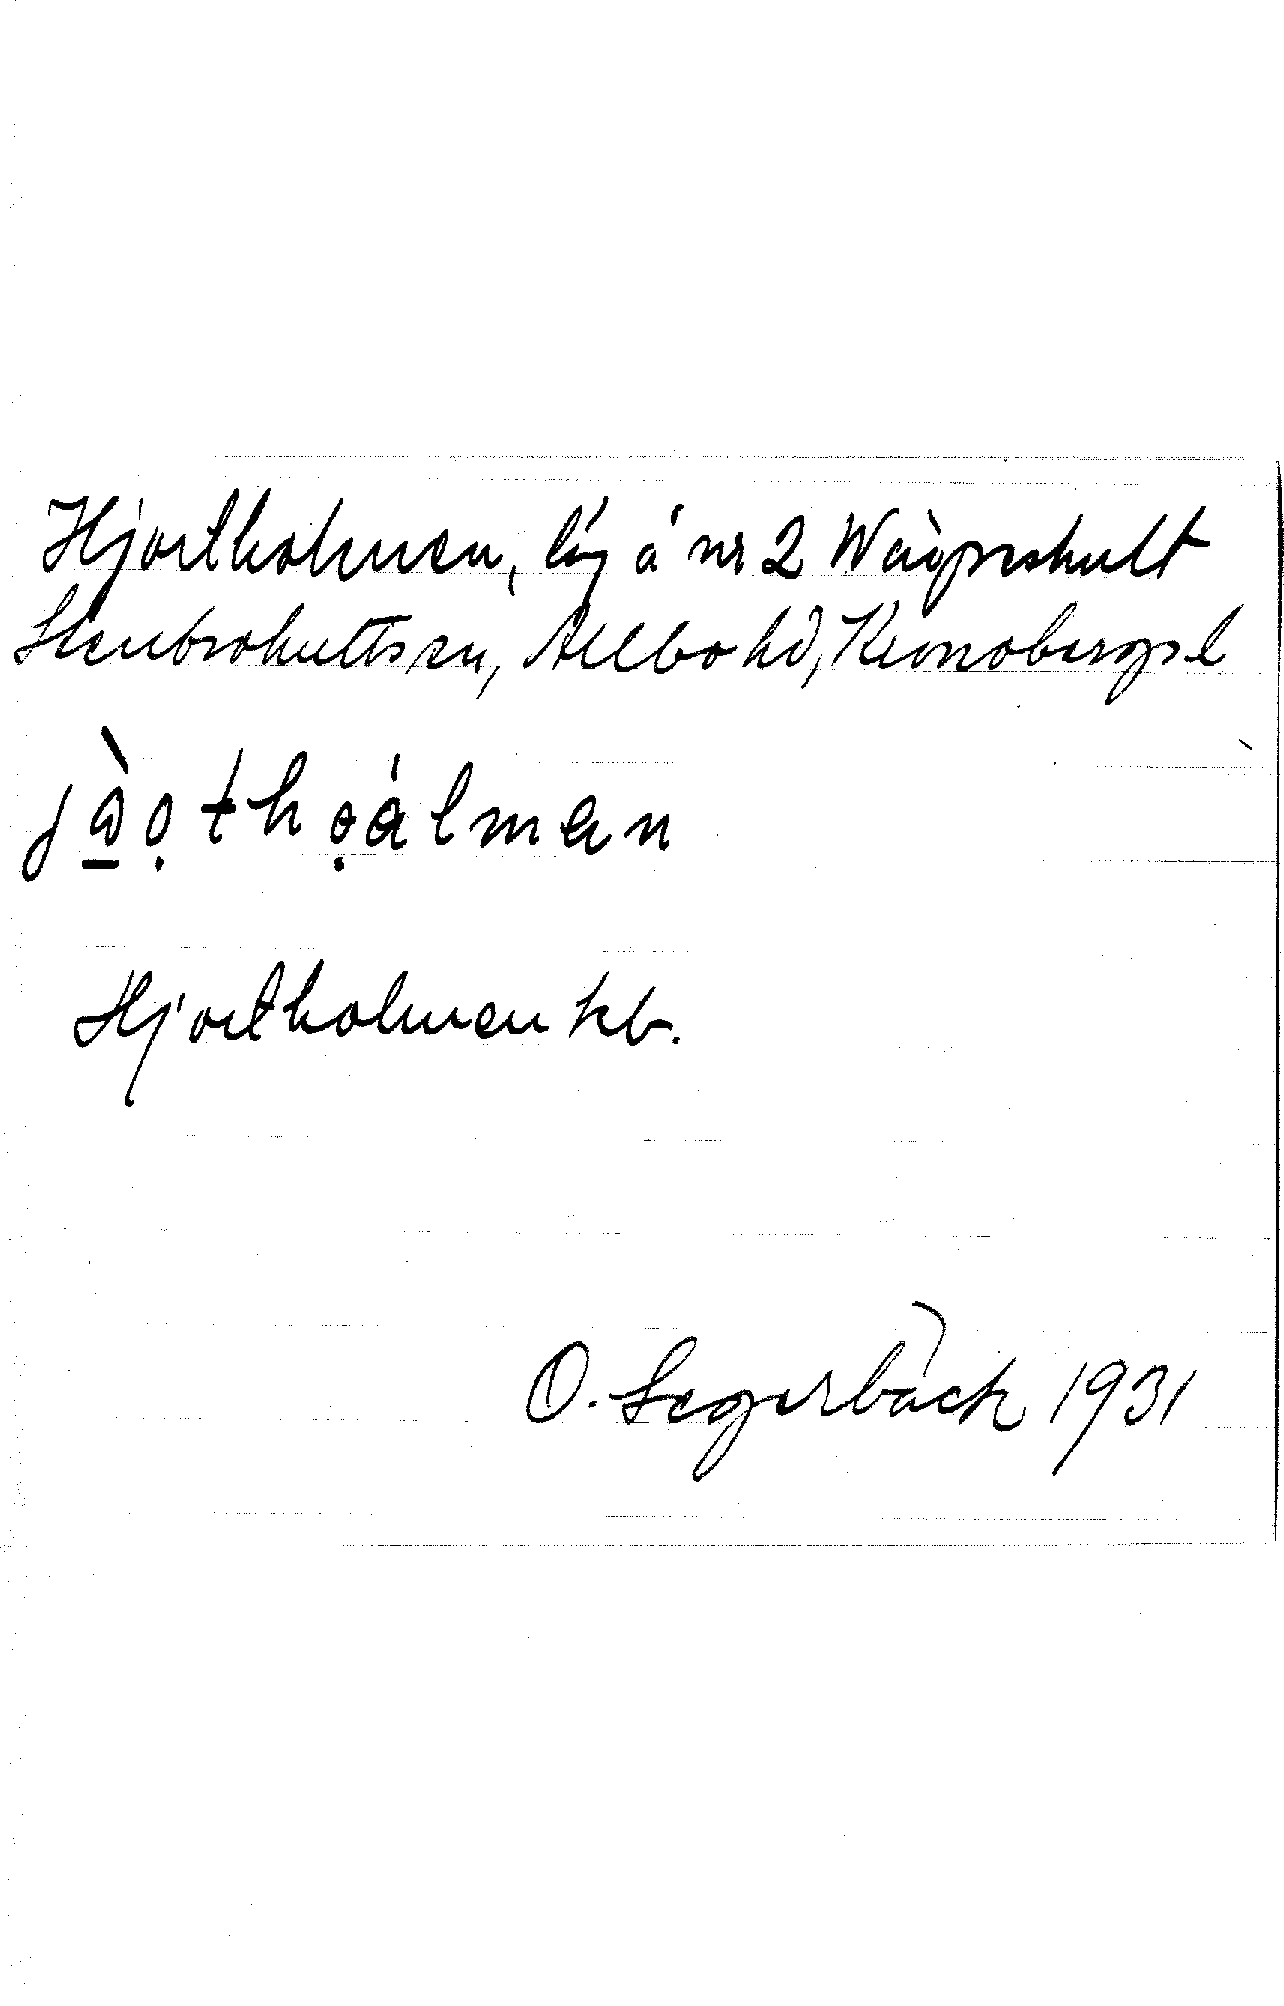 Hjortholmen, läg å nr 2 Wågreskult
Stenbrohults sn, Allbo hd, Kronobergs l
jàọthọálman
Hjortholmen kb.
O. Segerbäck 1931